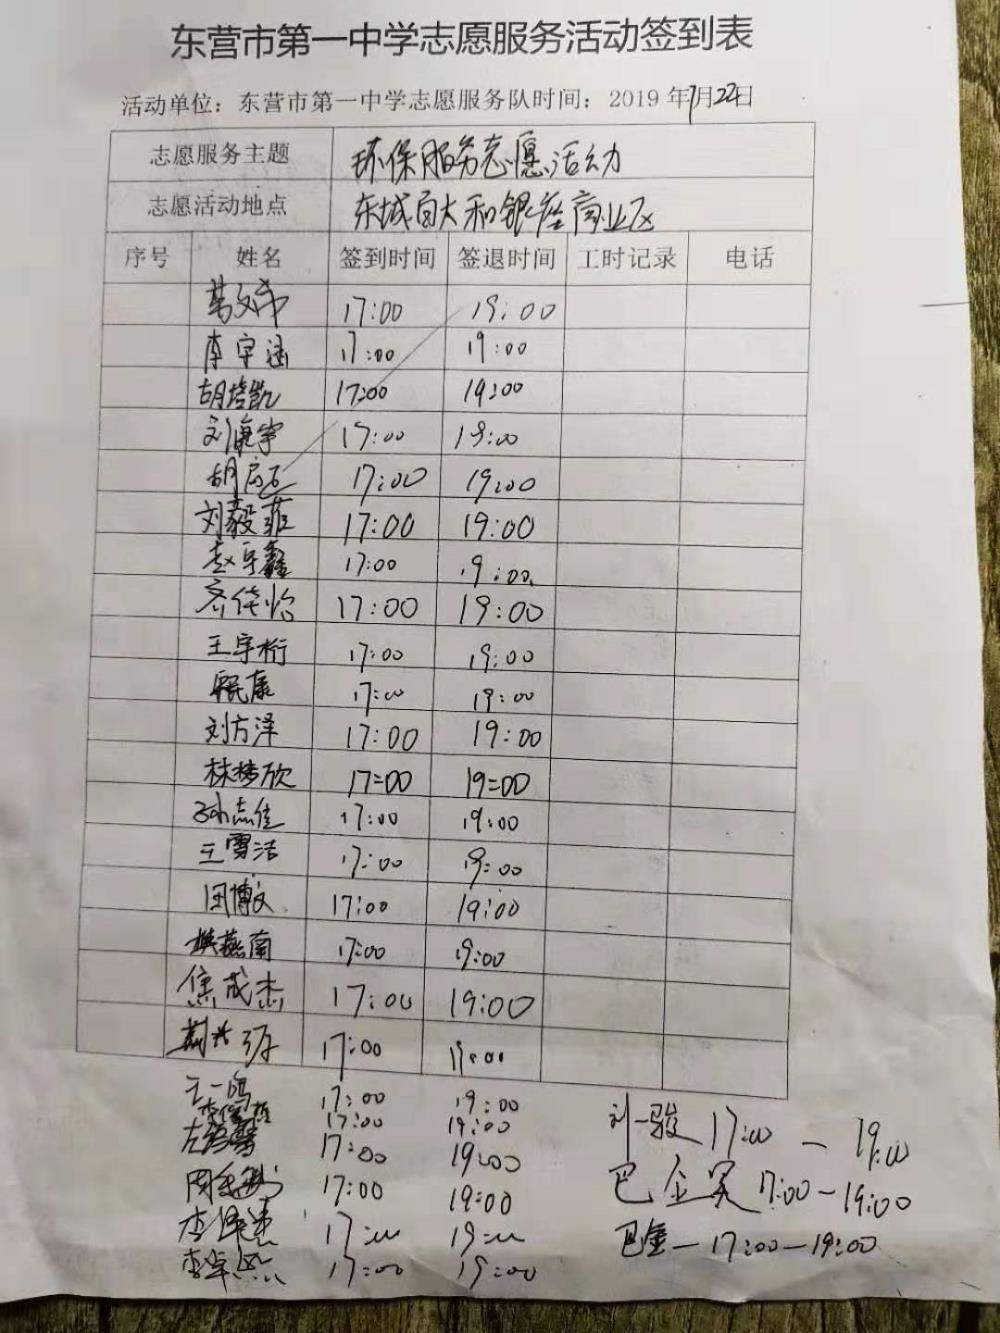 东营市第一中学志愿服务活动签到表
活动单位：东营市第一中学志愿服务队时间：2019 年7月22日
志愿服务主题 环保服务志愿活动
志愿活动地点 东城百大和银座商业区
序号 姓名 签到时间 签退时间 工时记录 电话
葛文希 17:00 19:00
李宇涵 17:00 19:00
胡培凯 17:00 19:00
刘康宇 17:00 19:00
胡 17:00 19:00
刘毅菲 17:00 19:00
赵宇鑫 17:00 19:00
齐佳怡 17:00 19:00
王宇桁 17:00 19:00
程康 17:00 19:00
刘方泽 17:00 19:00
林梦欣 17=00 19=00
孙志佳 17:00 19:00
王雪洁 17:00 19:00
闵博文 17:00 19:00
燕南 17:00 19:00
焦成杰 17:00 19:00
17:00 19:00
王一鸣 17:00 19:00
17:00 19:00
左 17:00 19:00
周 17:00 19:00
李 17:00 19:00
李 17:00 19:00
刘一骏 17:00 — 19:00
巴金昊 17:00-19:00
巴金一 17:00-19:00